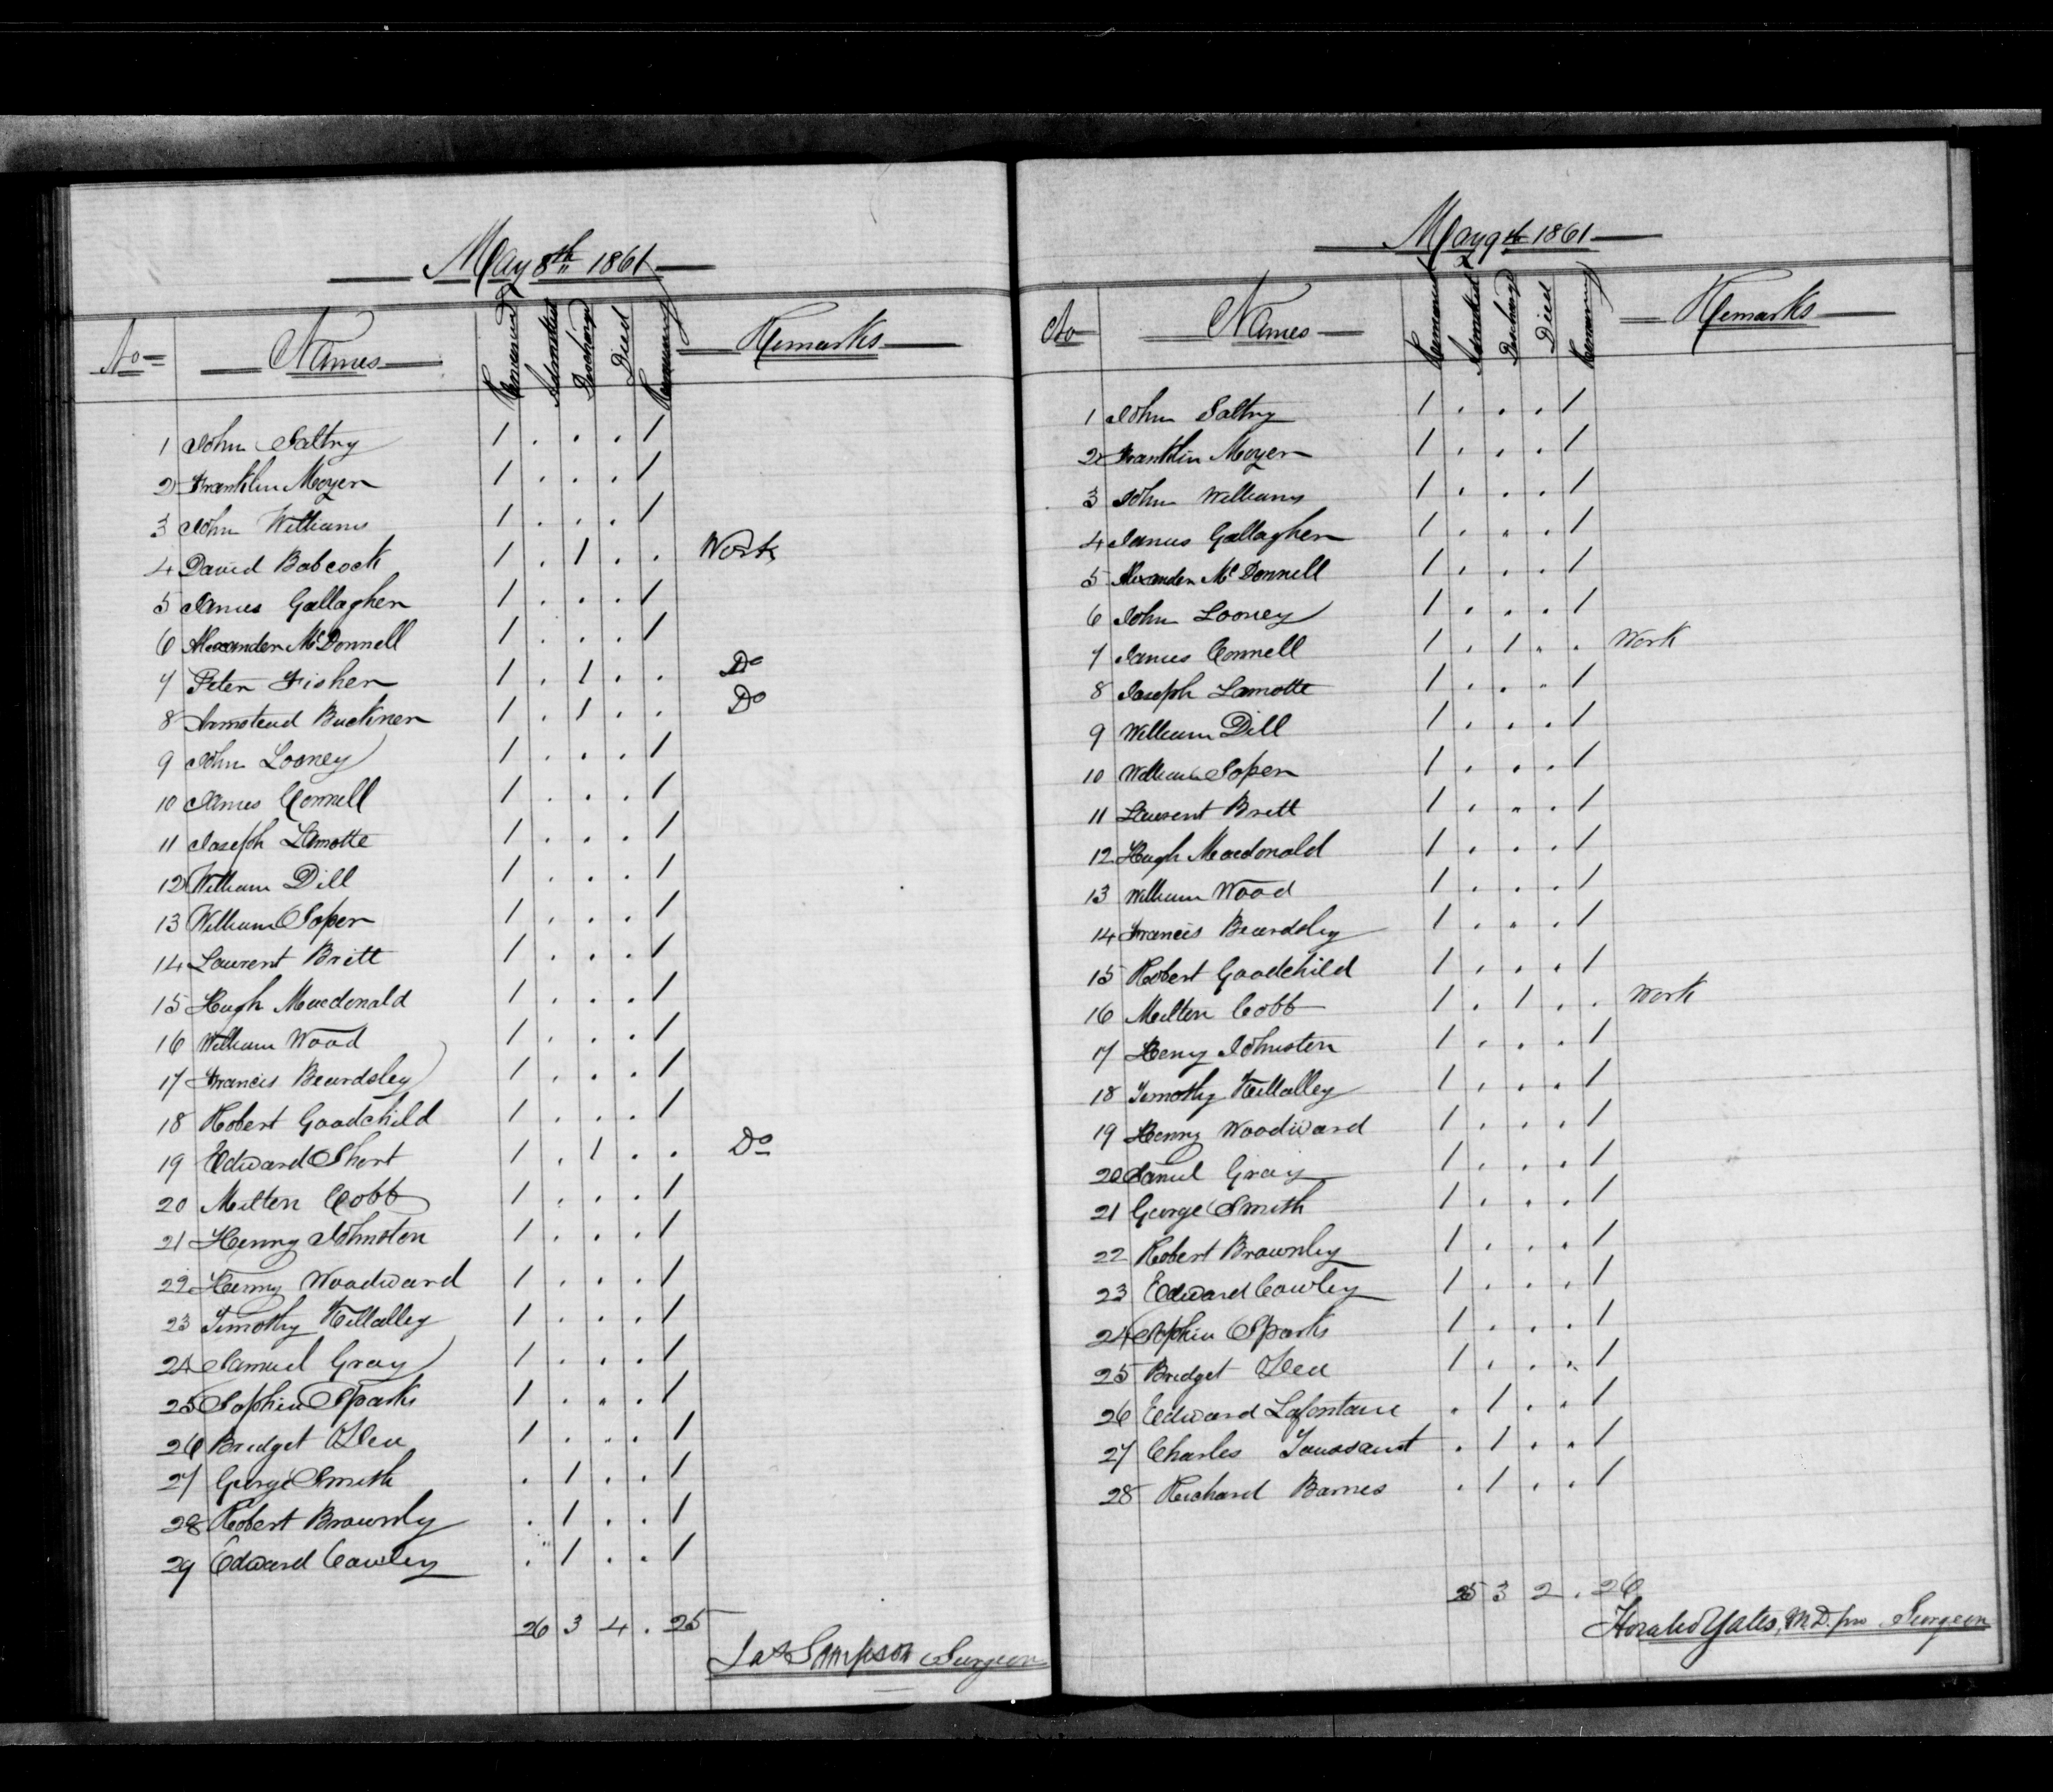 May 8th 1861
No Names Remained Admitted Discharged Died Remaining Remarks
1 John Saltry 1 . . . 1
2 Franklin Moyer 1 . . . 1
3 John Williams 1 . . . 1
4 David Babcock 1 . 1 . . Work
5 James Gallagher 1 . . . 1
6 Alexander McDonnell 1 . . . 1
7 Peter Fisher 1 . 1 . . Do
8 Armstead Buckner 1 . 1 . . Do
9 John Looney 1 . . . 1
10 James Connell 1 . . . 1
11 Joseph Lamotte 1 . . . 1
12 William Dill 1 . . . 1
13 William Soper 1 . . . 1
14 Laurent Britt 1 . . . 1
15 Hugh Macdonald 1 . . . 1
16 William Wood 1 . . . 1
17 Francis Beardsley 1 . . . 1
18 Robert Goodchild 1 . . . 1
19 Edward Short 1 . 1 . . Do
20 Milton Cobb 1 . . . 1
21 Henry Johnston 1 . . . 1
22 Henry Woodward 1 . . . 1
23 Timothy Killalley 1 . . . 1
24 Samuel Gray 1 . . . 1
25 Sophia Sparks 1 . . . 1
26 Bridget 1 . . . 1
27 George Smith . 1 . . 1
28 Robert Brownly . 1 . . 1
29 Edward Cawley . 1 . . 1
26 3 4 . 25
Jas Sampson Surgeon
May 9th 1861
No Names Remained Admitted Discharged Died Remaining Remarks
1 John Saltry 1 . . . 1
2 Franklin Moyer 1 . . . 1
3 John Williams 1 . . . 1
4 James Gallagher 1 . . . 1
5 Alexander McDonnell 1 . . . 1
6 John Looney 1 . . . 1
7 James Connell 1 . 1 . . Work
8 Joseph Lamotte 1 . . . 1
9 William Dill 1 . . . 1
10 William Soper 1 . . . 1
11 Laurent Britt 1 . . . 1
12 Hugh Macdonald 1 . . . 1
13 William Wood 1 . . . 1
14 Francis Beardsley 1 . . . 1
15 Robert Goodchild 1 . . . 1
16 Milton Cobb 1 . 1 . . Work
17 Henry Johnston 1 . . . 1
18 Timothy Killalley 1 . . . 1
19 Henry Woodward 1 . . . 1
20 Samuel Gray 1 . . . 1
21 George Smith 1 . . . 1
22 Robert Brownly 1 . . . 1
23 Edward Cawley 1 . . . 1
24 Sophia Sparks 1 . . . 1
25 Bridget 1 . . . 1
26 Edward Lafontaine . 1 . . 1
27 Charles Toussaint . 1 . . 1
28 Richard Barnes . 1 . . 1
25 3 2 . 26
Horatio Yates, M.D. pro Surgeon